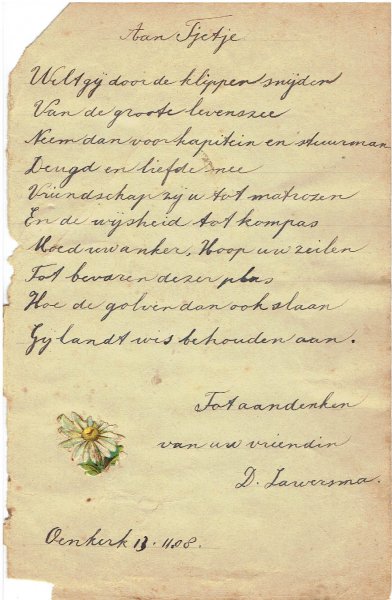 Aan Tjetje.
Wilt gij door de klippen snijden
Van de groote levenszee
Neem dan voor kapitein en stuurman
Deugd en liefde mee
Vriendschap zij u tot matrozen
En de wijsheid tot kompas
Moed uw anker, Hoop uw zeilen
Tot bevaren dezer plas
Hoe de golven dan ook slaan
Gij landt wis behouden aan.
Tot aandenken
van uw vriendin
D. Lawersma.
Oenkerk 13. 11.08.